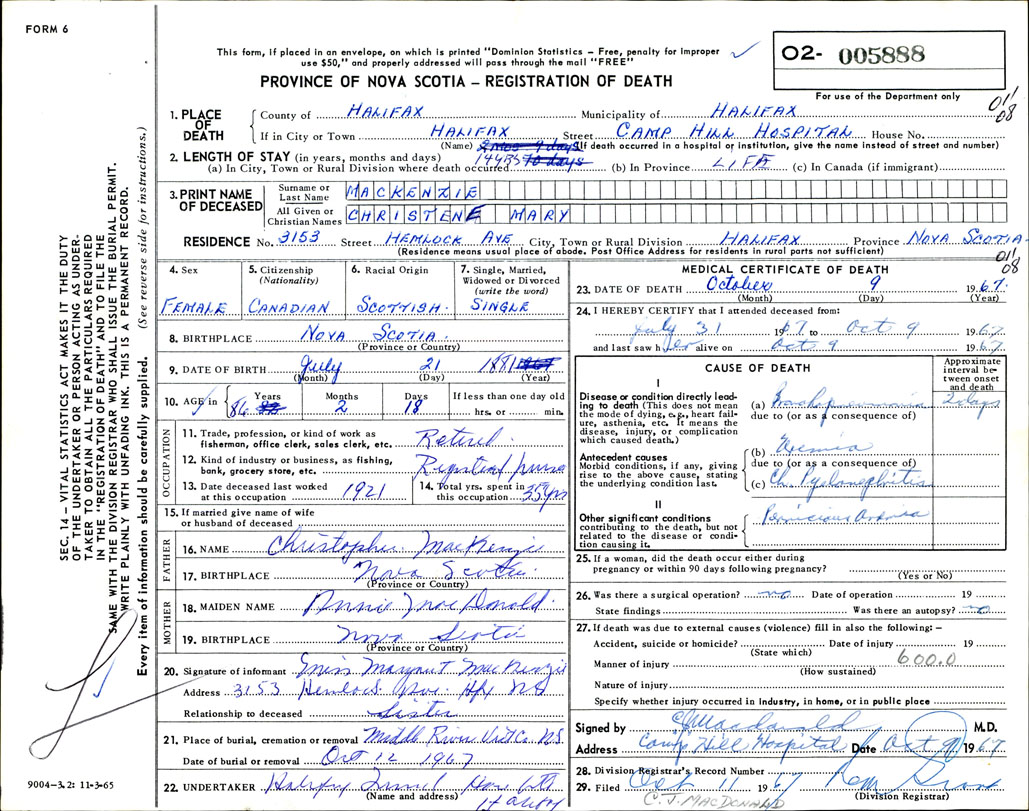 FORM 6
This form, if placed in an envelope, on which is printed "Dominion Statistics – Free, penalty for improper
use $50," and properly addressed will pass through the mail "FREE"
O2- 005888
PROVINCE OF NOVA SCOTIA – REGISTRATION OF DEATH
For use of the Department only
011
08
1. PLACE OF DEATH
County of HALIFAX Municipality of HALIFAX
If in City or Town HALIFAX Street CAMP HILL HOSPITAL House No.
(Name) (If death occurred in a hospital or institution, give the name instead of street and number)
2. LENGTH OF STAY (in years, months and days)
(a) In City, Town or Rural Division where death occurred 14 YRS (b) In Province LIFE (c) In Canada (if immigrant)
3. PRINT NAME OF DECEASED
Surname or Last Name MACKENZIE
All Given or Christian Names CHRISTENE MARY
RESIDENCE No. 3153 Street HEMLOCK AVE City, Town or Rural Division HALIFAX Province NOVA SCOTIA
(Residence means usual place of abode. Post Office Address for residents in rural parts not sufficient)
011
08
4. Sex FEMALE
5. Citizenship (Nationality) CANADIAN
6. Racial Origin SCOTTISH
7. Single, Married, Widowed or Divorced (write the word) SINGLE
8. BIRTHPLACE NOVA SCOTIA
(Province or Country)
9. DATE OF BIRTH July 21 1881
(Month) (Day) (Year)
10. AGE in Years 86 Months 2 Days 18 If less than one day old
hrs. or min.
OCCUPATION
11. Trade, profession, or kind of work as
fisherman, office clerk, sales clerk, etc. Retired
12. Kind of industry or business, as fishing,
bank, grocery store, etc. Registered nurse
13. Date deceased last worked
at this occupation 1921
14. Total yrs. spent in
this occupation 35 yrs
15. If married give name of wife
or husband of deceased
FATHER
16. NAME Christopher MacKenzie
17. BIRTHPLACE Nova Scotia
(Province or Country)
MOTHER
18. MAIDEN NAME Annie MacDonald
19. BIRTHPLACE Nova Scotia
(Province or Country)
20. Signature of informant Miss Margaret MacKenzie
Address 3153 Hemlock Ave. Hfx NS
Relationship to deceased Sister
21. Place of burial, cremation or removal Middle River Vict Co. N.S.
Date of burial or removal Oct 12 1967
22. UNDERTAKER Halifax Funeral Home Ltd
(Name and address) Halifax
MEDICAL CERTIFICATE OF DEATH
23. DATE OF DEATH October 9 1967
(Month) (Day) (Year)
24. I HEREBY CERTIFY that I attended deceased from:
July 31 1967 to Oct 9 1967
and last saw her alive on Oct 9 1967
CAUSE OF DEATH
Approximate interval between onset and death
I
Disease or condition directly leading to death (This does not mean the mode of dying, e.g., heart failure, asthenia, etc. It means the disease, injury, or complication which caused death.)
(a) Bronchopneumonia 2 days
due to (or as a consequence of)
Antecedent causes
Morbid conditions, if any, giving rise to the above cause, stating the underlying condition last.
(b) Uremia
due to (or as a consequence of)
(c) Ch. Pyelonephritis
II
Other significant conditions
contributing to the death, but not related to the disease or condition causing it.
Pernicious Anemia
25. If a woman, did the death occur either during
pregnancy or within 90 days following pregnancy?
(Yes or No)
26. Was there a surgical operation? no Date of operation 19
State findings Was there an autopsy? no
27. If death was due to external causes (violence) fill in also the following: –
Accident, suicide or homicide? Date of injury 19
(State which)
Manner of injury 600.0
(How sustained)
Nature of injury
Specify whether injury occurred in industry, in home, or in public place
Signed by CJ Macdonald M.D.
Address Camp Hill Hospital Date Oct 9 1967
28. Division Registrar's Record Number
29. Filed Oct 11 1967
(Division Registrar)
C. J. MACDONALD
SEC. 14 – VITAL STATISTICS ACT MAKES IT THE DUTY
OF THE UNDERTAKER OR PERSON ACTING AS UNDERTAKER
TO OBTAIN ALL THE PARTICULARS REQUIRED
IN THE "REGISTRATION OF DEATH" AND TO FILE THE
SAME WITH THE DIVISION REGISTRAR WHO SHALL ISSUE THE BURIAL PERMIT.
WRITE PLAINLY WITH UNFADING INK. THIS IS A PERMANENT RECORD.
Every item of information should be carefully supplied. (See reverse side for instructions.)
9004-3.2: 11-3-65